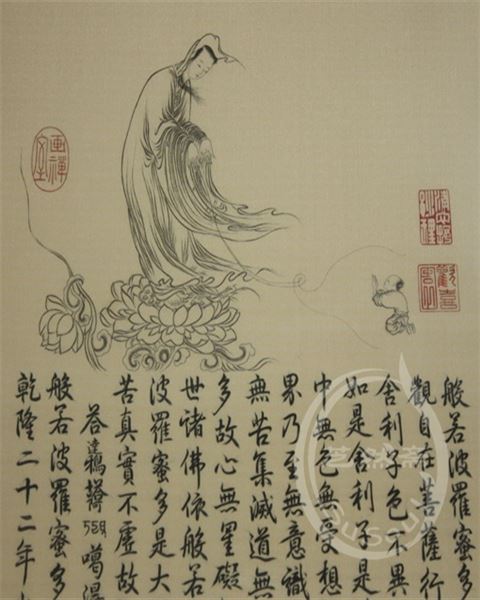 畫禪室
般若波羅蜜多
觀自在菩薩行
舍利子色不異
如是舍利子是
中無色無受想
界乃至無意識
無苦集滅道無
多故心無罣礙
世諸佛依般若
波羅蜜多是大
苦真實不虛故
荅達鴉 噶
般若波羅蜜多
乾隆二十二年